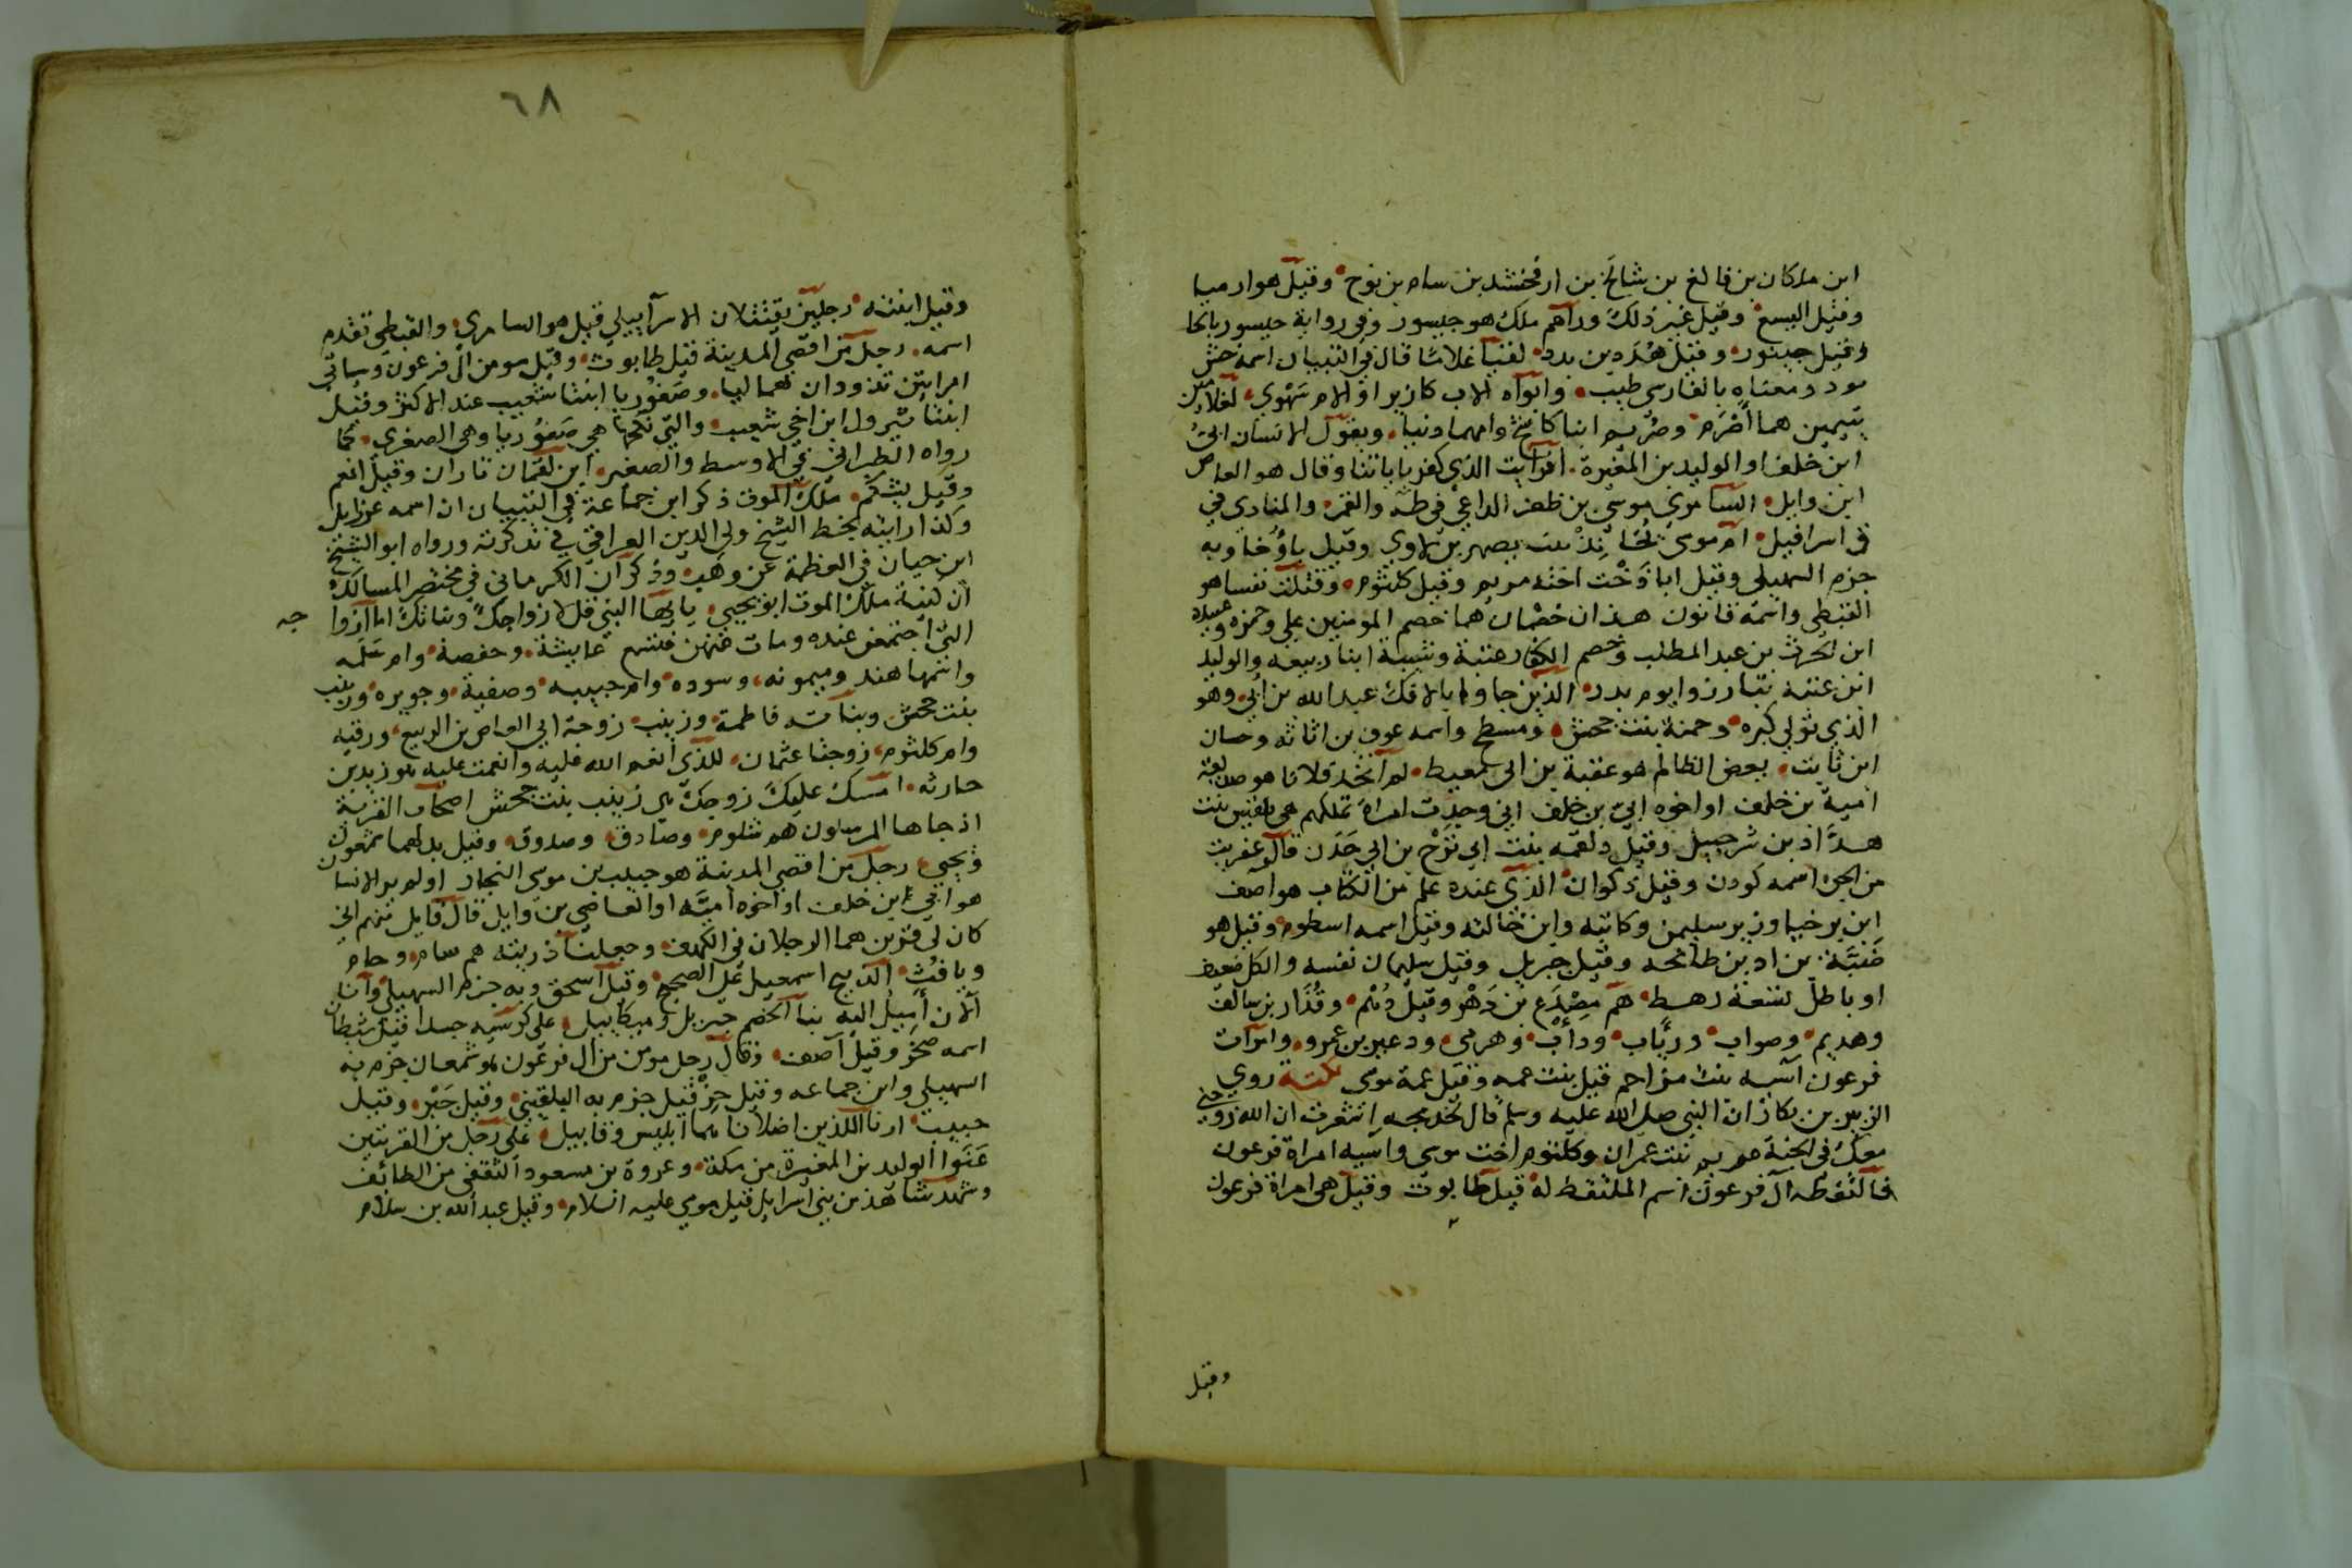 ابن ملكان بن فالغ بن شالخ بن ارفخشد بن سام بن نوح وقيل هو ارميا
وقيل اليسع وقيل غير ذلك وراهم ملك هو جيسور وفي رواية حيسور بالحا
وقيل جينور وقيل هدد بن بدد لقيا غلاما قال في التبيان اسمه حش
نود ومعناه بالفارسي طيب وابواه الاب كازير او الام سهوي لغلامين
يتيمين هما اصرم وصريم ابنا كاشح وامهما دنيا ويقول الانسان ابي
ابن خلف او الوليد بن المغيرة افرايت الذي كفر باياتنا وقال هو العاص
ابن وايل السامري موسى بن ظفر الداعي في طه والقمر والمنادي في
ق اسرافيل ام موسى لخاند بنت يصهر بن لاوي وقيل ياوخا وبه
جزم السهيلي وقيل اباذخت اخته مريم وقيل كلثوم وقتلت نفسا هو
القبطي واسمه قانون هذان خصمان هما خصم المومنين علي وحمزه وعبيدة
ابن الحرث بن عبد المطلب وخصم الكفار عتبة وشيبة ابنا ربيعه والوليد
ابن عتبه تبارزوا يوم بدر الذين جاوا بالافك عبد الله بن ابي وهو
الذي تولي كبره وحمنة بنت جحش ومسطح واسمه عوف بن اثاثه وحسان
ابن ثابت بعض الظالم هو عقبة بن ابي معيط لم اتخذ فلانا هو صديقه
امية بن خلف او اخوه ابي بن خلف اني وجدت امراة تملكهم هي بلقيس بنت
هداد بن شرحبيل وقيل دلغمه بنت ابي نزح بن ابي جدن قال عفريت
من الجن اسمه كودن وقيل ذكوان الذي عنده علم من الكتاب هو آصف
ابن برخيا وزير سليمن وكاتبه وابن خالته وقيل اسمه اسطوم وقيل هو
ضبة بن اد بن طانحه وقيل جبريل وقيل سليمان نفسه والكل ضعيف
او باطل تسعة رهط هم مصدع بن دهر وقيل دهم وقدار بن سالف
وهديم وصواب ورياب وداب وهرمي ودعير بن عمرو وامرات
فرعون آسيه بنت مزاحم قيل بنت عمه وقيل عمة موسى نكتة روي
الزبير بن بكار ان النبي صلى الله عليه وسلم قال لخديجه اشعرت ان الله زوجني
معك في الجنة مريم بنت عمران وكلثوم اخت موسى وآسيه امراة فرعون
فالتقطه آل فرعون اسم الملتقط له قيل طابوث وقيل هي امراة فرعون
وقيل
٦٨
وقيل ابنته رجلين يقتتلان الاسراييلي قيل هو السامري والقبطي تقدم
اسمه رجل من اقصى المدينة قيل طابوث وقيل مومن ال فرعون وسياتي
امراتين تذودان هما ليا وصفوريا ابنتا شعيب عند الاكثر وقيل
ابنتا يثرول ابن اخي شعيب والتي نكحها هي صفوريا وهي الصغرى كما
رواه الطبراني في الاوسط والصغير ابن لقمان تاران وقيل انعم
وقيل يشكم ملك الموت ذكر ابن جماعة في التبيان ان اسمه عزرايل
وكذا رايته بخط الشيخ ولي الدين العراقي في تذكرته ورواه ابو الشيخ
ابن حيان في العظمة عن وهب وذكر ان الكرماني في مختصر المسالك
ان كنية ملك الموت ابو يحيي يا ايها النبي قل لازواجك وبناتك اما ازوا جه
التي اجتمعن عنده ومات عنهن فتسع عايشة وحفصة وام سلمه
واسمها هند وميمونه وسوده وام حبيبه وصفية وجويره وزينب
بنت جحش وبناته فاطمة وزينب زوجة ابي العاص بن الربيع ورقيه
وام كلثوم زوجتا عثمان للذي انعم الله عليه وانعمت عليه هو زيد بن
حارثه امسك عليك زوجك هي زينب بنت جحش اصحاب القرية
اذ جاها المرسلون هم شلوم وصادق وصدوق وقيل بدلهما شمعون
ويحيي رجل من اقصى المدينة هو حبيب بن موسى النجار اولم ير الانسان
هو ابي ابن خلف او اخوه امية او العاصي بن وايل قال قايل منهم اني
كان لي قرين هما الرجلان في الكهف وجعلنا ذريته هم سام وحام
ويافث الذبيح اسمعيل على الصحيح وقيل اسحق وبه جزم السهيلي وانا
الان اميل اليه نبا الخصم جبريل وميكاييل على كرسيه جسدا قيل شيطان
اسمه صخر وقيل آصف وقال رجل مومن من ال فرعون هو شمعان جزم به
السهيلي وابن جماعه وقيل حزقيل جزم به البلقيني وقيل جبر وقيل
حبيب ارنا اللذين اضلانا هما ابليس وقابيل على رجل من القريتين
عنوا الوليد بن المغيرة من مكة وعروة بن مسعود الثقفي من الطائف
وشهد شاهد من بني اسرايل قيل موسى عليه السلام وقيل عبد الله بن سلام